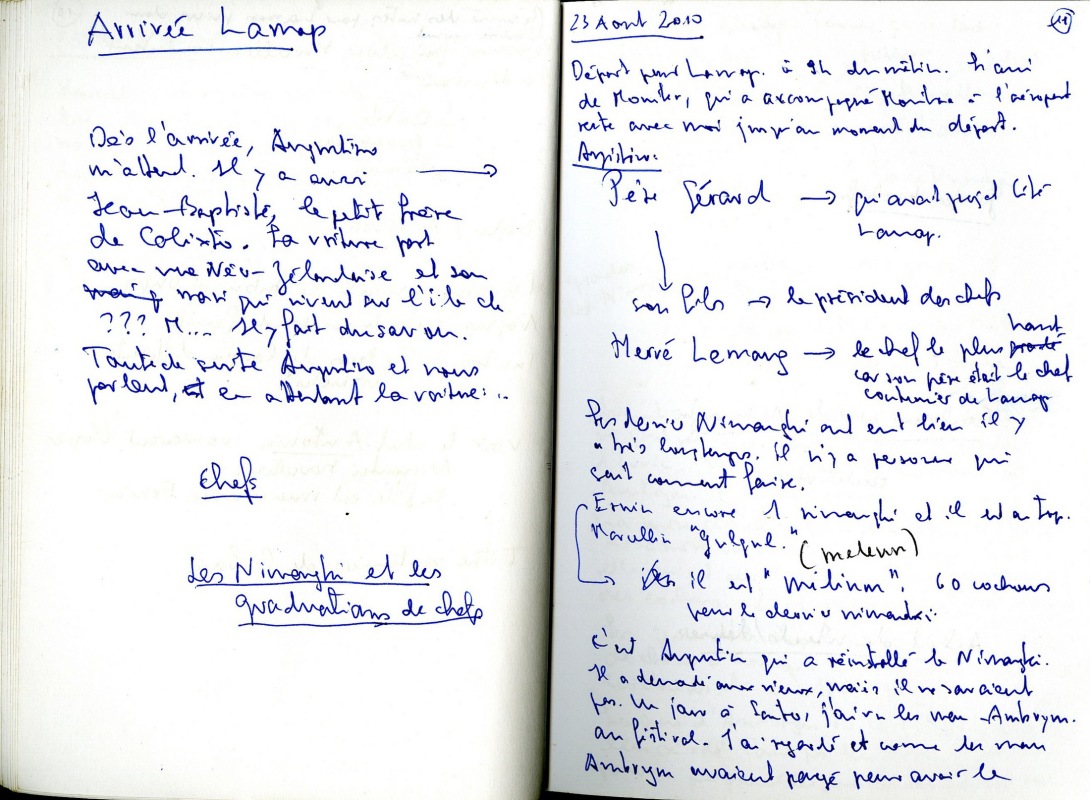 Arrivée Lamap
Dès l'arrivée, Augustino
m'attend. Il y a aussi
Jean-Baptiste, le petit frère
de Calixto. La voiture part
avec une Néo-Zélandaise et son
mari qui vivent sur l'île de
??? M... Il y fait du savon.
Tout de suite Augustino et nous
parlent, et en attendant la voiture:..
chefs
Les Nimanghi et les
graduations de chefs
23 Aout 2010
11
Départ pour Lamap. à 9h du matin. L'ami
de Moniker, qui a accompagné Monikae à l'aéroport
reste avec moi jusqu'au moment du départ.
Augustino:
Père Gérard → qui avait projet
Lamap.
son fils → le président des chefs
Hervé Lemang → le chef le plus haut
car son père était le chef
coutumier de Lamap
Les derniers Nimanghi ont eut lieu il y
a très longtemps. il n'y a personne qui
sait comment faire.
Erwin encore 1 nimanghi et il est au top.
Marcellin "gulgul."
(meleun)
il est "milium". 60 cochons
pour le dernier nimanghi
C'est Augustin qui a réinstallé le Nimanghi.
Il a demandé aux vieux, mais il ne savaient
pas. Un jour à Santo, j'ai vu les man-Ambrym.
au festival. J'ai regardé et comme les man
Ambrym avaient payé pour avoir le